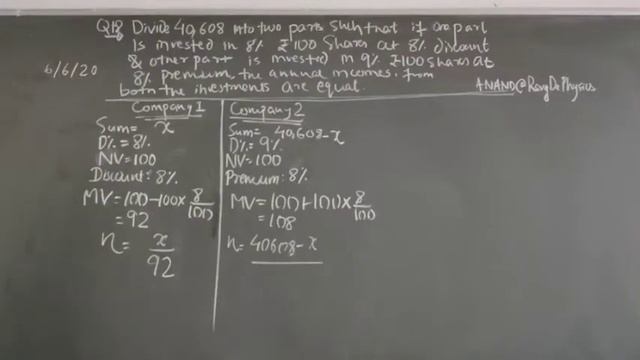 Q18 Divide 40,608 into two parts such that if one part
is invested in 8% ₹100 Shares at 8% discount
& other part is invested in 9% ₹100 shares at
6/6/20
8% premium, the annual incomes from
both the investments are equal.
ANAND@RavgDoPhysics
Company 1
Sum = x
D% = 8%
NV = 100
Discount: 8%
MV = 100 - 100 x 8/100
= 92
n = x/92
Company 2
Sum = 40,608 - x
D% = 9%
NV = 100
Premium: 8%
MV = 100 + 100 x 8/100
= 108
n = 40608 - x